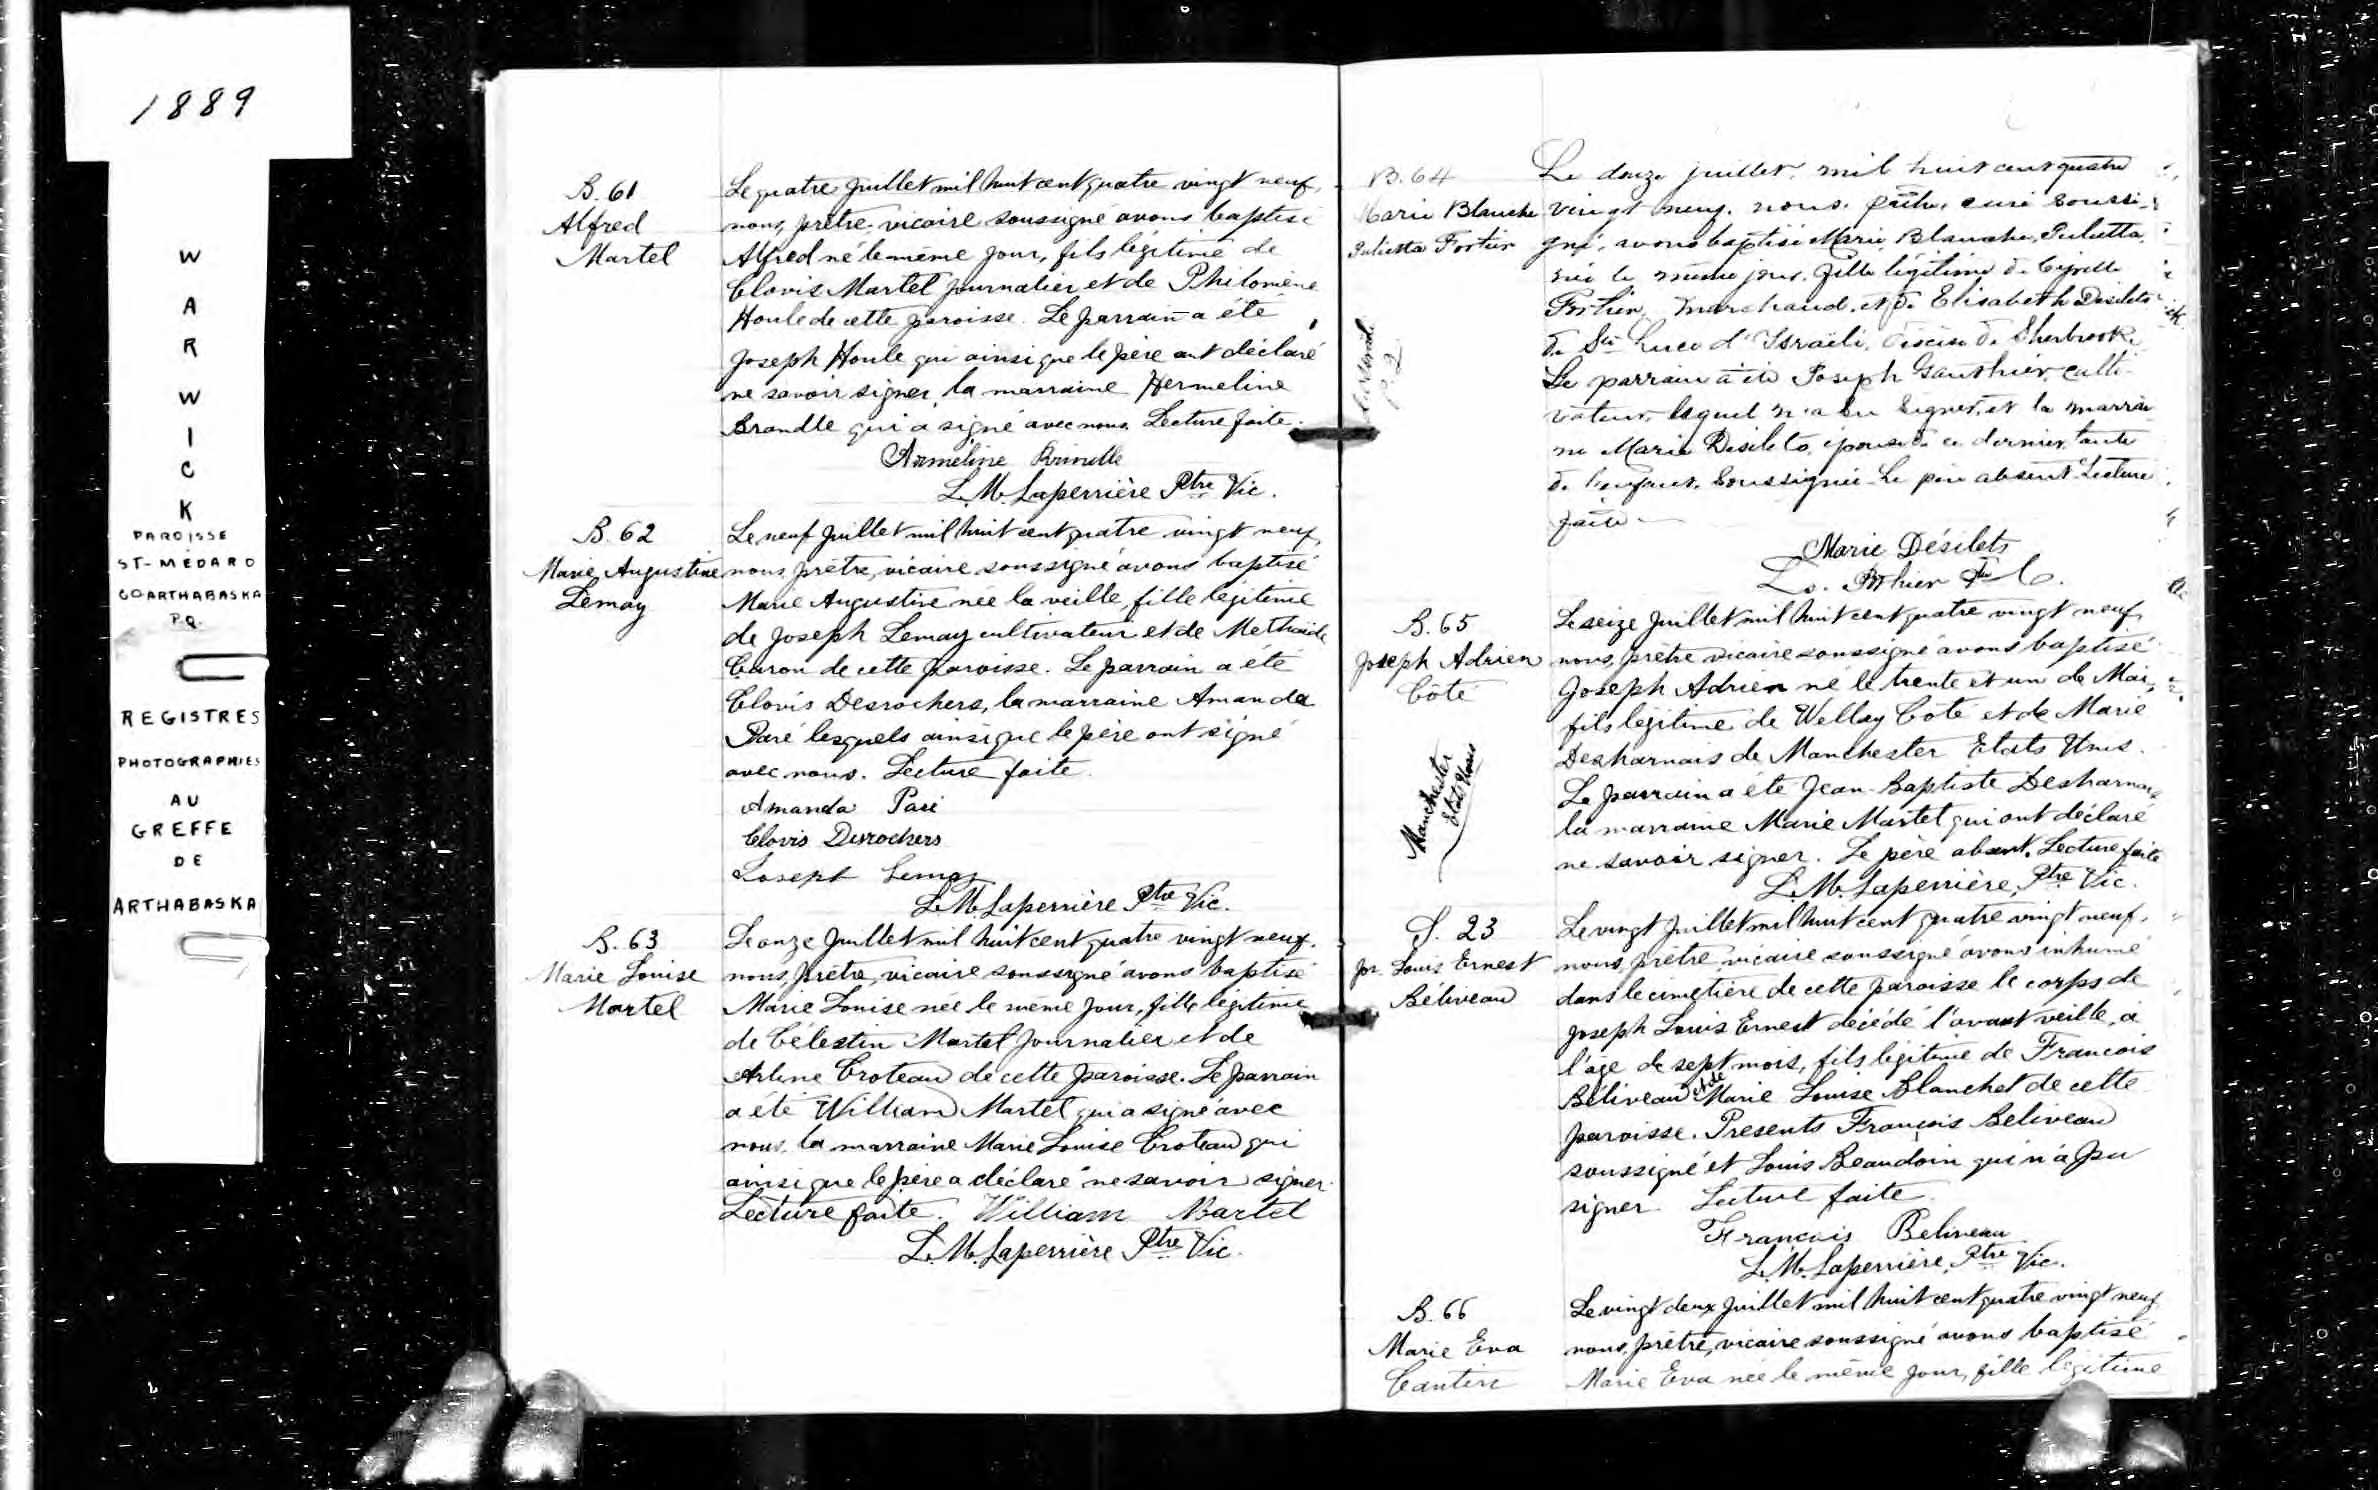 1889
W
A
R
W
I
C
K
PAROISSE
ST-MÉDARD
CO ARTHABASKA
P.Q.
REGISTRES
PHOTOGRAPHIES
AU
GREFFE
DE
ARTHABASKA
B. 61
Alfred
Martel
Le quatre Juillet mil huit cent quatre vingt neuf,
nous, prêtre, vicaire soussigné avons baptisé
Alfred né le même jour, fils légitime de
Clovis Martel Journalier et de Philomène
Houle de cette paroisse. Le parrain a été
Joseph Houle qui ainsi que le père ont déclaré
ne savoir signer, la marraine Hermeline
qui a signé avec nous. Lecture faite.
Armeline
L. M. Laperrière Ptre Vic.
B. 62
Marie Augustine
Lemay
Le neuf Juillet mil huit cent quatre vingt neuf,
nous, prêtre, vicaire soussigné avons baptisé
Marie Augustine née la veille, fille légitime
de Joseph Lemay cultivateur et de
Caron de cette paroisse. Le parrain a été
Clovis Desrochers, la marraine Amanda
Paré lesquels ainsi que le père ont signé
avec nous. Lecture faite.
Amanda Paré
Clovis Desrochers
Joseph Lemay
L. M. Laperrière Ptre Vic.
B. 63
Marie Louise
Martel
Le onze Juillet mil huit cent quatre vingt neuf.
nous, prêtre, vicaire soussigné avons baptisé
Marie Louise née le même jour, fille légitime
de Célestin Martel Journalier et de
Croteau de cette paroisse. Le parrain
a été William Martel qui a signé avec
nous, la marraine Marie Louise Croteau qui
ainsi que le père a déclaré ne savoir signer.
Lecture faite. William Martel
L. M. Laperrière Ptre Vic.
B. 64
Marie Blanche
Julietta Fortier
Le douze juillet, mil huit cent quatre
vingt neuf, nous, prêtre, curé soussi-
gné, avons baptisé Marie, Blanche, Julietta,
née le même jour, fille légitime de
Fortier, marchand, et de Elisabeth Désilets
de d'Israëli, diocèse de Sherbrooke.
Le parrain a été Joseph Gauthier, culti-
vateur, lequel n'a su signer, et la marrai-
ne Marie Desilets, épouse de ce dernier, tante
de l'enfant, soussignée. Le père absent. Lecture
faite
Marie Désilets
B. 65
Joseph Adrien
Côté
Manchester
Etats Unis
Le seize Juillet mil huit cent quatre vingt neuf,
nous, prêtre vicaire soussigné avons baptisé
Joseph Adrien né le trente et un de Mai,
fils légitime de Wellay Côté et de Marie
Desharnais de Manchester Etats Unis.
Le parrain a été Jean-Baptiste Desharnais
la marraine Marie Martel qui ont déclaré
ne savoir signer. Le père absent. Lecture faite
L. M. Laperrière, Ptre Vic.
S. 23
Jos. Louis Ernest
Béliveau
Le vingt Juillet mil huit cent quatre vingt neuf,
nous, prêtre, vicaire soussigné avons inhumé
dans le cimetière de cette paroisse le corps de
Joseph Louis Ernest décédé l'avant veille, à
l'âge de sept mois, fils légitime de François
Béliveau et de Marie Louise Blanchet de cette
paroisse. Présents François Beliveau
soussigné et Louis Beaudoin qui n'a pu
signer. Lecture faite.
Francois Beliveau
L. M. Laperrière, Ptre Vic.
B. 66
Marie Eva
Cantin
Le vingt deux Juillet mil huit cent quatre vingt neuf
nous, prêtre, vicaire soussigné avons baptisé
Marie Eva née le même jour, fille légitime